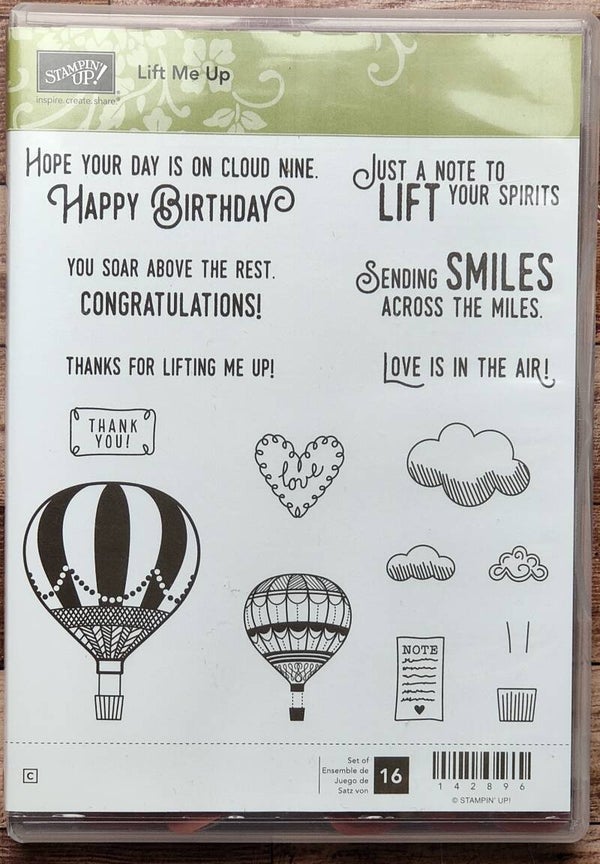 STAMPIN' UP!
Lift Me Up
inspire. create. share.®
HOPE YOUR DAY IS ON CLOUD NINE.
HAPPY BIRTHDAY
JUST A NOTE TO
LIFT YOUR SPIRITS
YOU SOAR ABOVE THE REST.
CONGRATULATIONS!
SENDING SMILES
ACROSS THE MILES.
THANKS FOR LIFTING ME UP!
LOVE IS IN THE AIR!
THANK
YOU!
love
NOTE
C
Set of
Ensemble de
Juego de
Satz von
16
142896
© STAMPIN' UP!